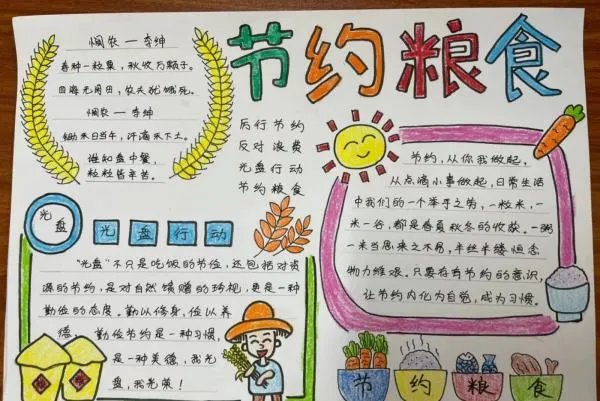 节约粮食
悯农——李绅
春种一粒粟，秋收万颗子。
四海无闲田，农夫犹饿死。
悯农——李绅
锄禾日当午，汗滴禾下土。
谁知盘中餐，
粒粒皆辛苦。
厉行节约
反对浪费
光盘行动
节约粮食
节约，从你我做起，
从点滴小事做起，日常生活
中我们的一个举手之劳，一粒米，一
米一谷，都是春夏秋冬的收获。一粥
一米当思来之不易，半丝半缕恒念
物力维艰。只要存有节约的意识，
让节约内化为自觉，成为习惯。
光盘
光盘行动
"光盘"不只是吃饭的节俭，还包括对资
源的节约，是对自然馈赠的珍视，更是一种
勤俭的态度。勤以修身，俭以养
德，勤俭节约是一种习惯，
是一种美德，我光
盘，我光荣！
节约粮食